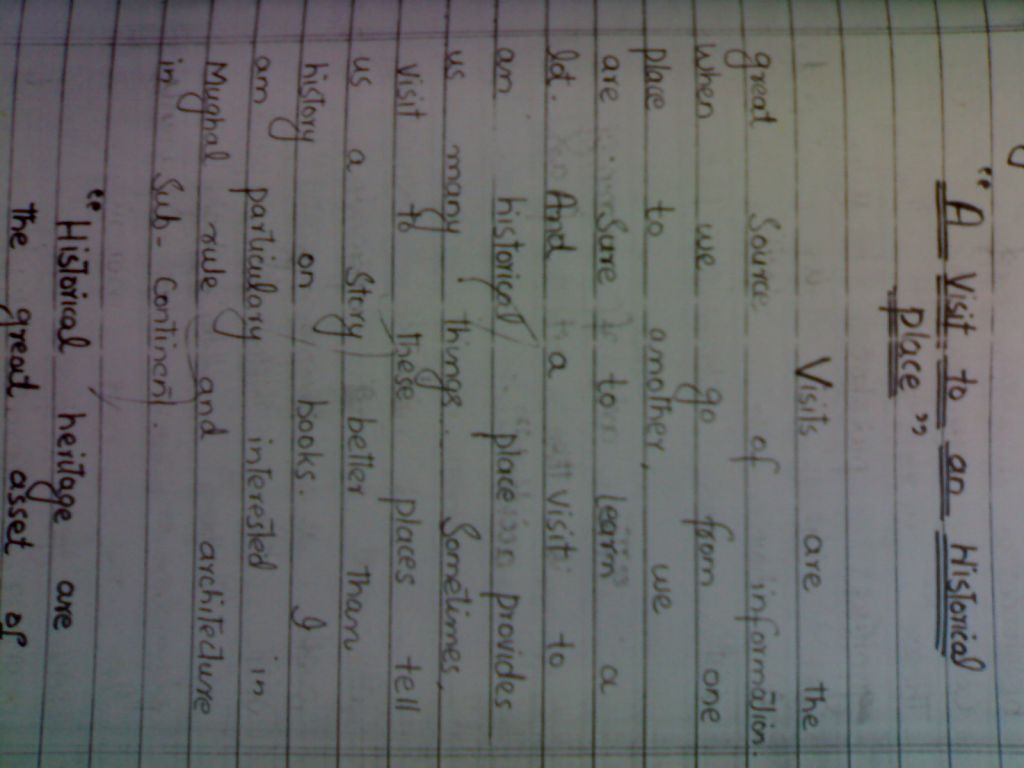 "A Visit to an Historical
place"
Visits are the
great Source of information.
when we go from one
place to another, we
are Sure to learn a
lot. And a visit to
an historical place provides
us many things. Sometimes,
visit to these places tell
us a Story better than
history on books. I
am particulary interested in
Mughal rule and architecture
in Sub-Continent.
"Historical heritage are
the gread asset of